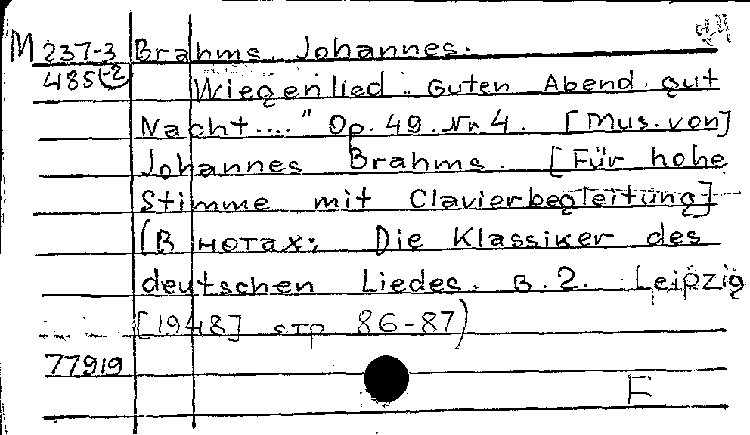 М 237-3 Brahms, Johannes.
485(-2) Wiegenlied "Guten Abend gut
Nacht...." Op. 49. Nr 4. [Mus. von]
Johannes Brahms. [Für hohe
Stimme mit Clavierbegleitung]
(В нотах: Die Klassiker des
deutschen Liedes. B. 2. Leipzig
[1948] стр 86-87)
77919
E